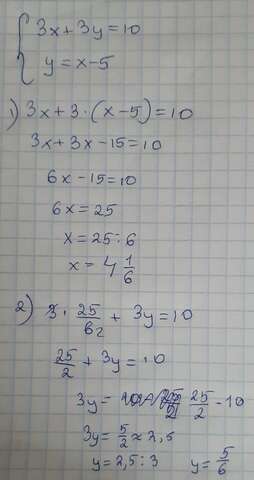 3x+3y=10
y=x-5
1) 3x+3·(x-5)=10
3x+3x-15=10
6x-15=10
6x=25
x=25:6
x=4 1/6
2) 3·25/62+3y=10
25/2+3y=10
3y=25/2-10
3y=5/2≈2,5
y=2,5:3 y=5/6